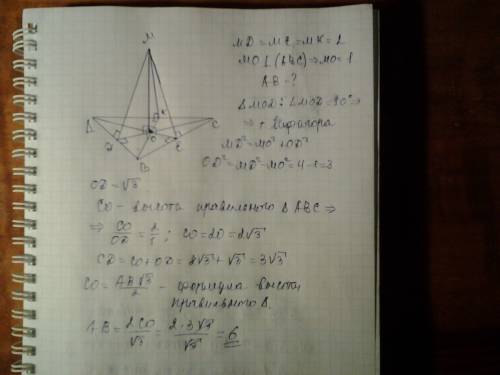 M
A
C
D
O
E
B
K
MD = ME = MK = 2
MO ⊥ (ABC) ⇒ MO = 1
AB - ?
Δ MOD: ∠MOD = 90° ⇒
⇒ т. Пифагора
MD² = MO² + OD²
OD² = MD² - MO² = 4 - 1 = 3
OD = √3
CD - высота правильного Δ ABC ⇒
⇒ CO/OD = 2/1; CO = 2OD = 2√3
CD = CO + OD = 2√3 + √3 = 3√3
CD = AB√3/2 - формула высоты
правильного Δ.
AB = 2CD/√3 = 2·3√3/√3 = 6